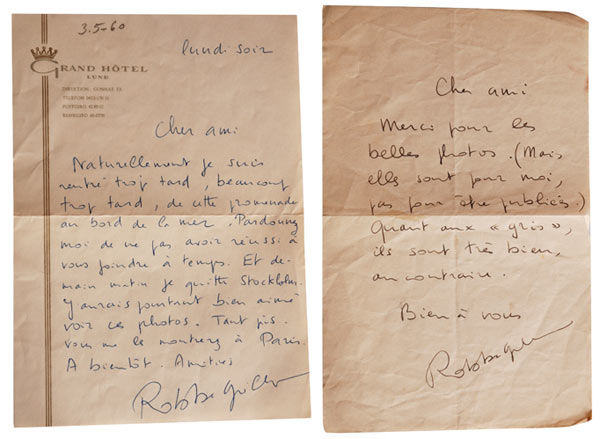 3.5-60
lundi soir
GRAND HÔTEL
LUND
Cher ami
Naturellement je suis
rentré trop tard, beaucoup
trop tard, de cette promenade
au bord de la mer. Pardonnez
moi de ne pas avoir réussi à
vous joindre à temps. Et de-
main matin je quitte Stockholm.
J'aurais pourtant bien aimé
voir ces photos. Tant pis.
vous me les montrerez à Paris.
A bientôt. Amitiés
Robbe-Grillet
Cher ami
Merci pour les
belles photos. (Mais
elles sont pour moi,
pas pour être publiées.)
Quant aux « gris »,
ils sont très bien,
au contraire.
Bien à vous
Robbe-Grillet